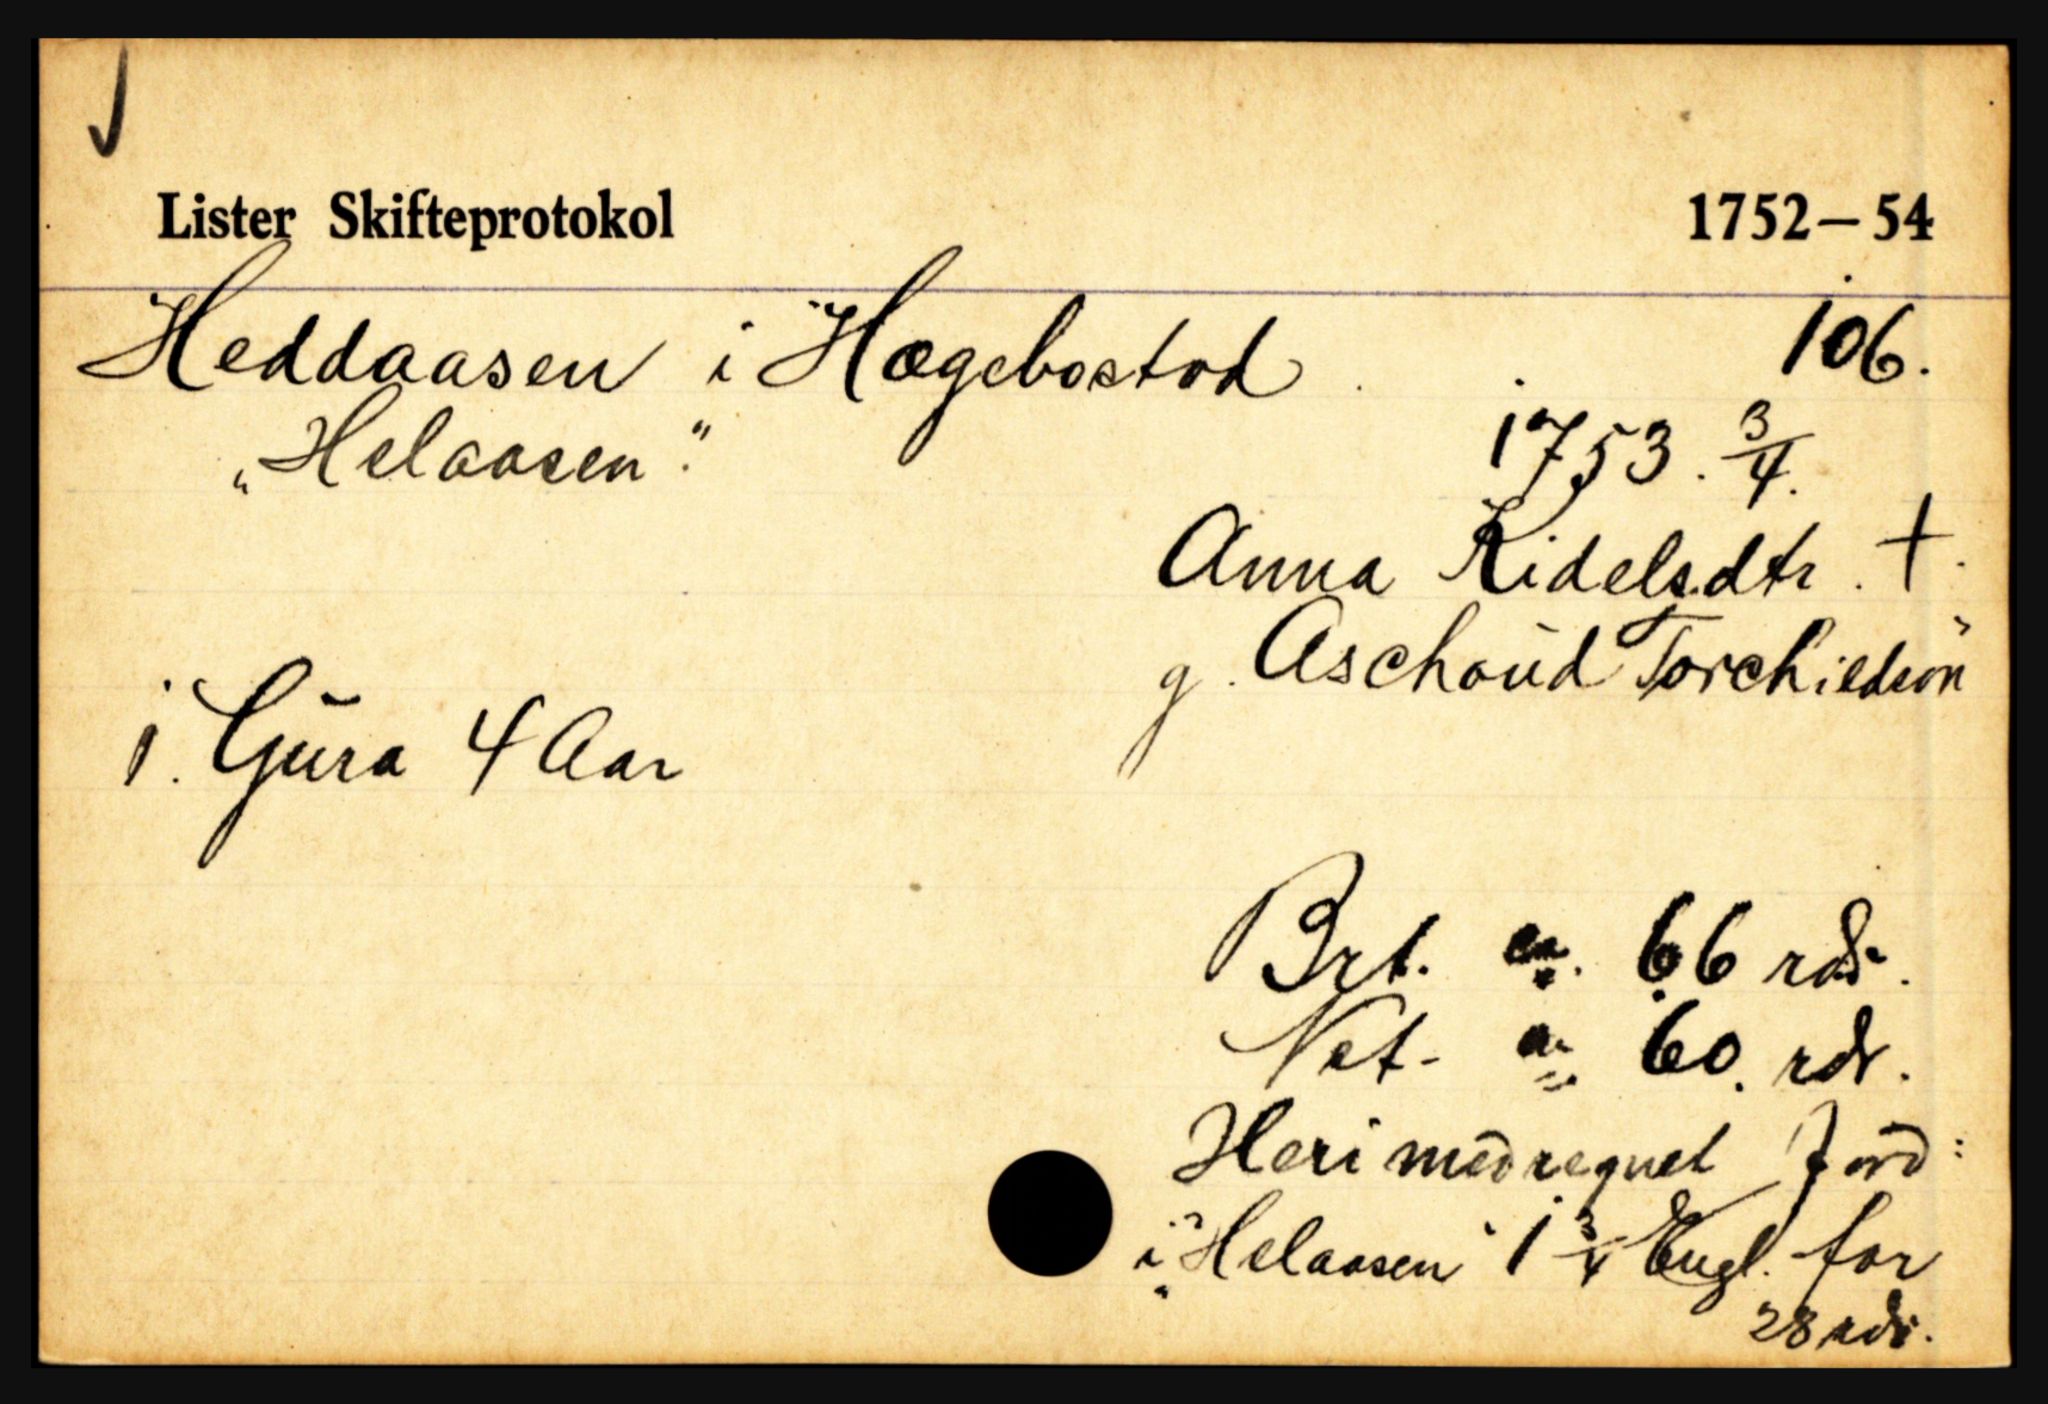 Lister Skifteprotokol 1752-54
Heddaasen i Hægebostad 106.
„Helaasen". 1753. 3/4.
Anna Kidelsdtr. +.
g. Aschoŭd Torchieldsøn
1. Gŭra 4 Aar
Brt. ca. 66 rdr.
Net- ca. 60. rdr.
Heri medregnet Jord:
i „Helaasen" 1 3/4 Engl. for
28 rdr.